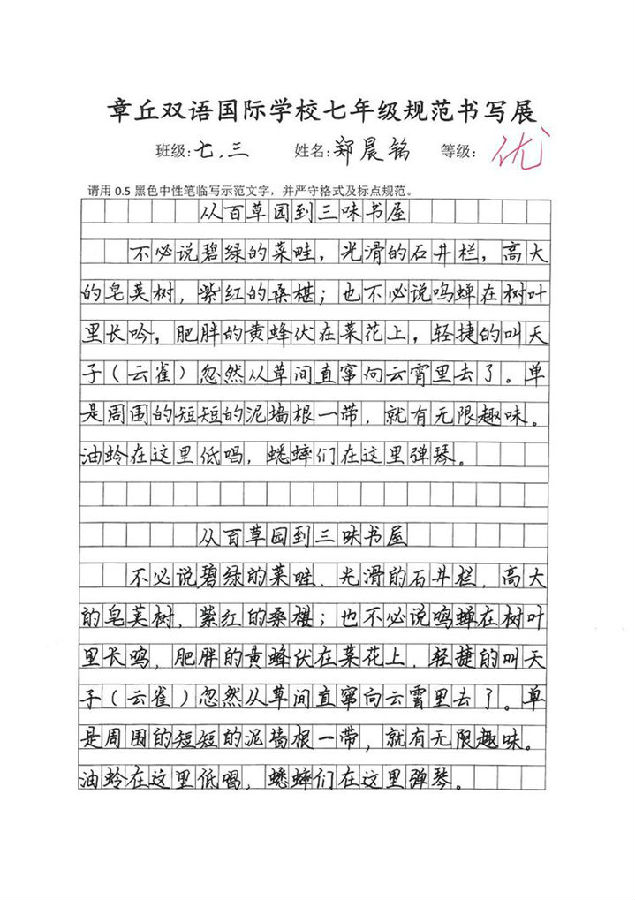 章丘双语国际学校七年级规范书写展
班级:七.三 姓名:郑晨铭 等级: 优
请用 0.5 黑色中性笔临写示范文字，并严守格式及标点规范。
从百草园到三味书屋
不必说碧绿的菜畦，光滑的石井栏，高大
的皂荚树，紫红的桑椹；也不必说鸣蝉在树叶
里长吟，肥胖的黄蜂伏在菜花上，轻捷的叫天
子（云雀）忽然从草间直窜向云霄里去了。单
是周围的短短的泥墙根一带，就有无限趣味。
油蛉在这里低唱，蟋蟀们在这里弹琴。
从百草园到三味书屋
不必说碧绿的菜畦，光滑的石井栏，高大
的皂荚树，紫红的桑椹；也不必说鸣蝉在树叶
里长鸣，肥胖的黄蜂伏在菜花上，轻捷的叫天
子（云雀）忽然从草间直窜向云霄里去了。单
是周围的短短的泥墙根一带，就有无限趣味。
油蛉在这里低唱，蟋蟀们在这里弹琴。